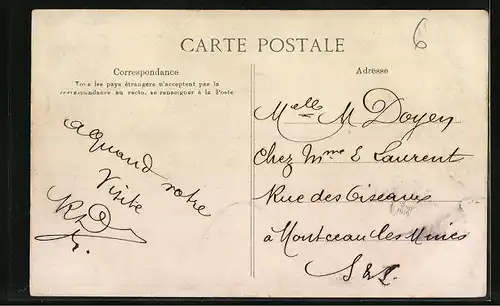 6
CARTE POSTALE
Correspondance
Tous les pays étrangers n'acceptent pas la
correspondance au recto, se renseigner à la Poste
Adresse
a quand votre
Visite
Melle M Doyen
Chez Mme E Laurent
Rue des Oiseaux
à Montceau les Mines
S & L